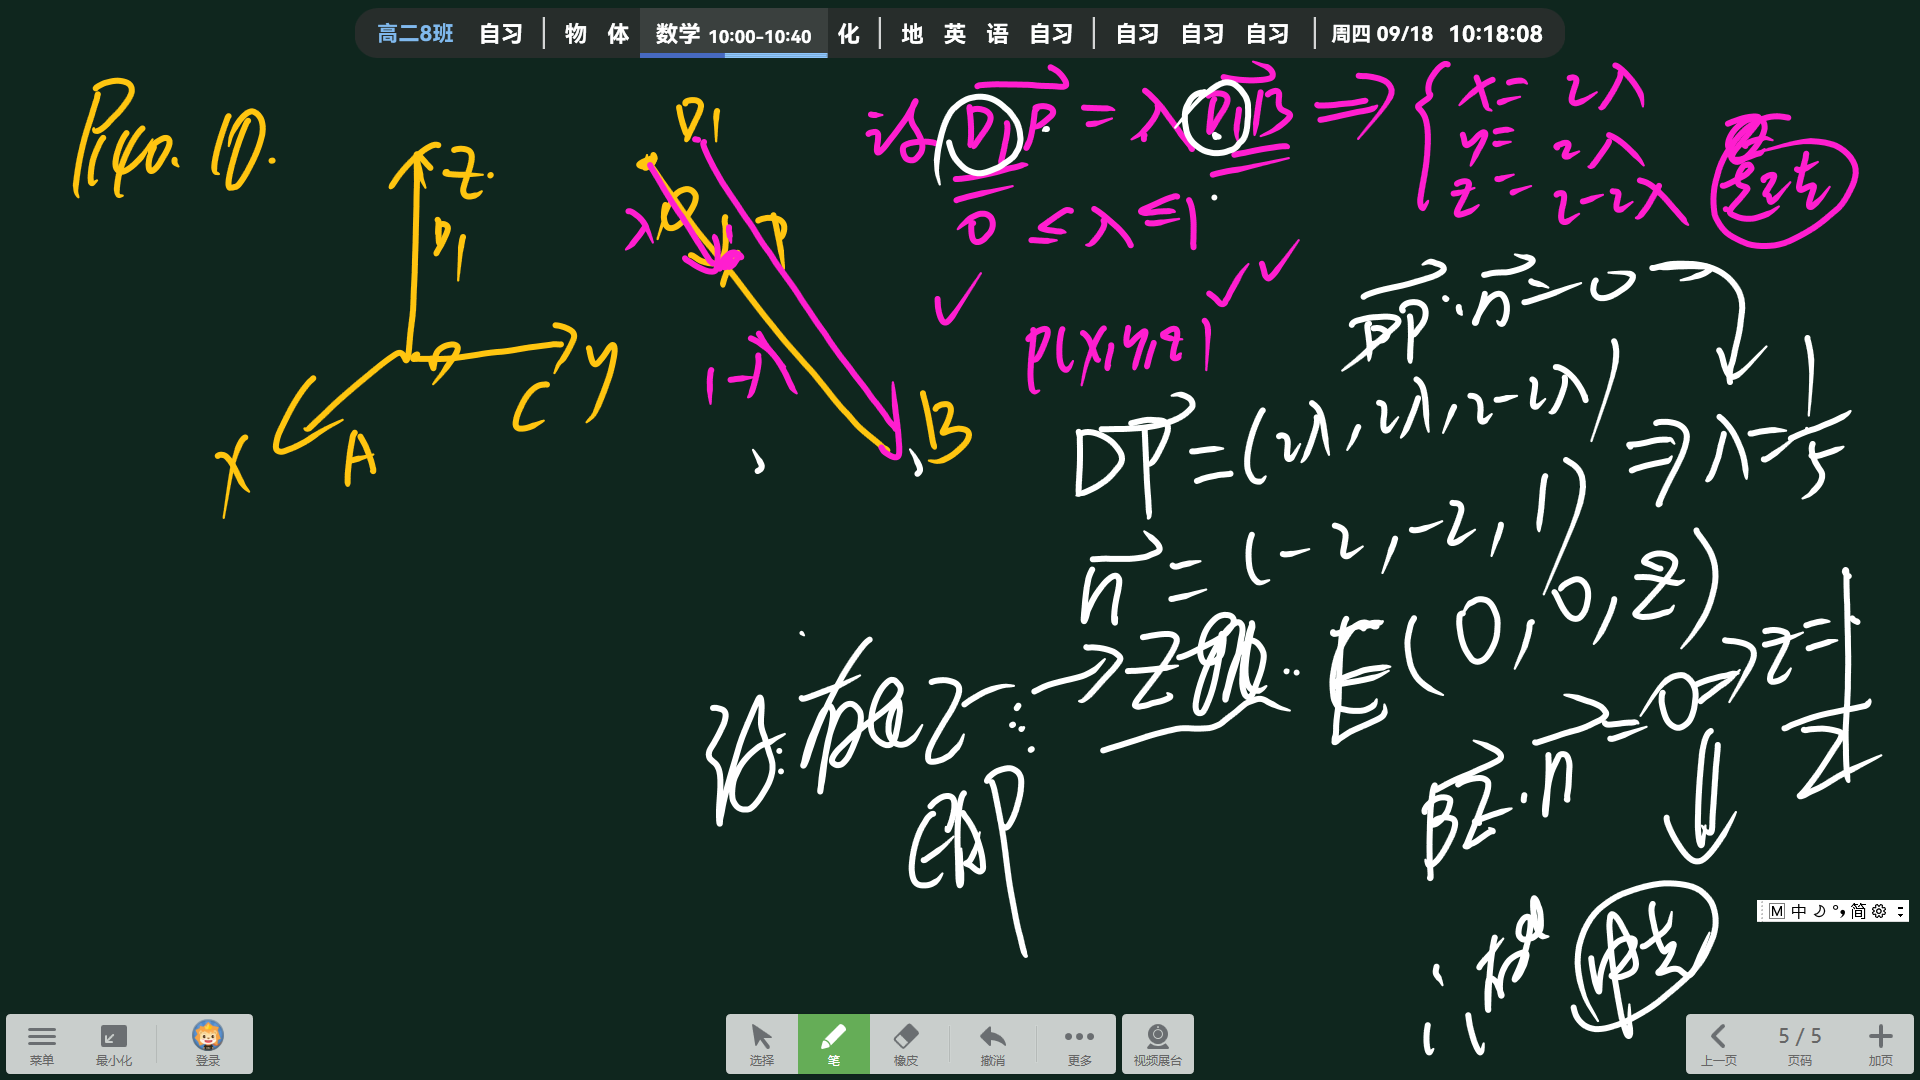 高二8班 自习 | 物 体 数学 10:00-10:40 化 | 地 英 语 自习 | 自习 自习 自习 | 周四 09/18 10:18:08
P140. 10.
Z
D1
D
y
C
x
A
D1
P
λ
1-λ
B
设 D1P = λ D1B ⇒ { x= 2λ
y= 2λ
z= 2-2λ
0 ≤ λ ≤ 1
P(x,y,z)
DP·n=0
DP=(2λ,2λ,2-2λ) ⇒ λ=1/5
n=(-2,-2,1)
设:存在Z
→Z轴 E(0,0,z)
·n=0→z=
∴存在 中点
M 中 简
菜单
最小化
登录
选择
笔
橡皮
撤消
更多
视频展台
上一页
5 / 5
页码
加页